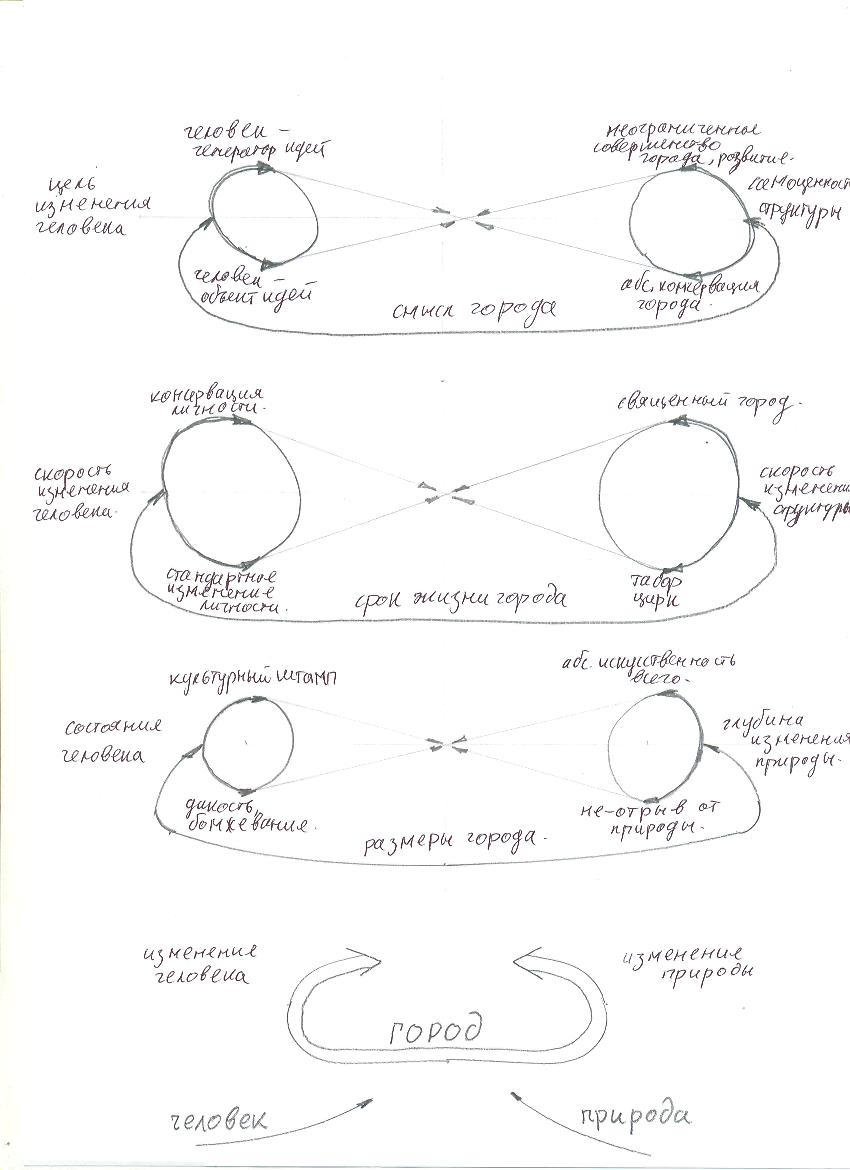 человек –
генератор идей
неограниченное
совершенство
города, развитие.
цель
изменения
человека
самоценность
структуры
человек –
объект идей
абс. консервация
города.
смысл города
консервация
личности.
священный город.
скорость
изменения
человека.
скорость
изменения
структуры
стандартное
изменение
личности.
табор
цирк
срок жизни города
культурный штамп
абс. искуственность
всего.
состояния
человека
глубина
изменения
природы.
дикость,
бомжевания.
не-отрыв от
природы.
размеры города.
изменения
человека
изменения
природы
ГОРОД
человек
природа